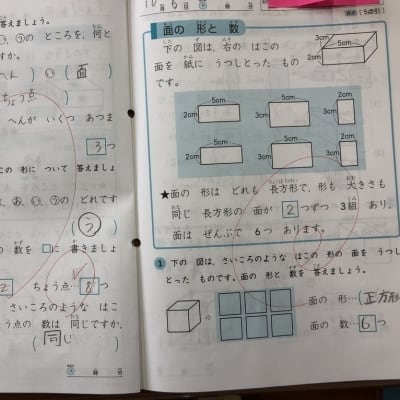 答えましょう。
のところを、何と
すか。
へん
い(面)
ちょう点
へんが いくつ あつま
3つ
この 形に ついて 答えましょ
は、あ、い、うの どれです
う
の 数を □に 書きましょ
2
ちょう点… 8つ
さいころのような はこ
う点の 数は 同じですか。
(同じ
月 日 時 分
面の 形と 数
下の 図は、右の はこの
面を 紙に うつしとった もの
です。
3cm
2cm
5cm
5cm
2cm
5cm
3cm
2cm
3cm
5cm
2cm
5cm
3cm
2cm
3cm
★面の 形は どれも 長方形で、形も 大きさも
同じ 長方形の 面が 2つずつ 3組 あり、
面は ぜんぶで 6つ あります。
1 下の 図は、さいころのような はこの 形の 面を うつし
とった ものです。面の 形と 数を 答えましょう。
面の 形…(正方形
面の 数… 6つ